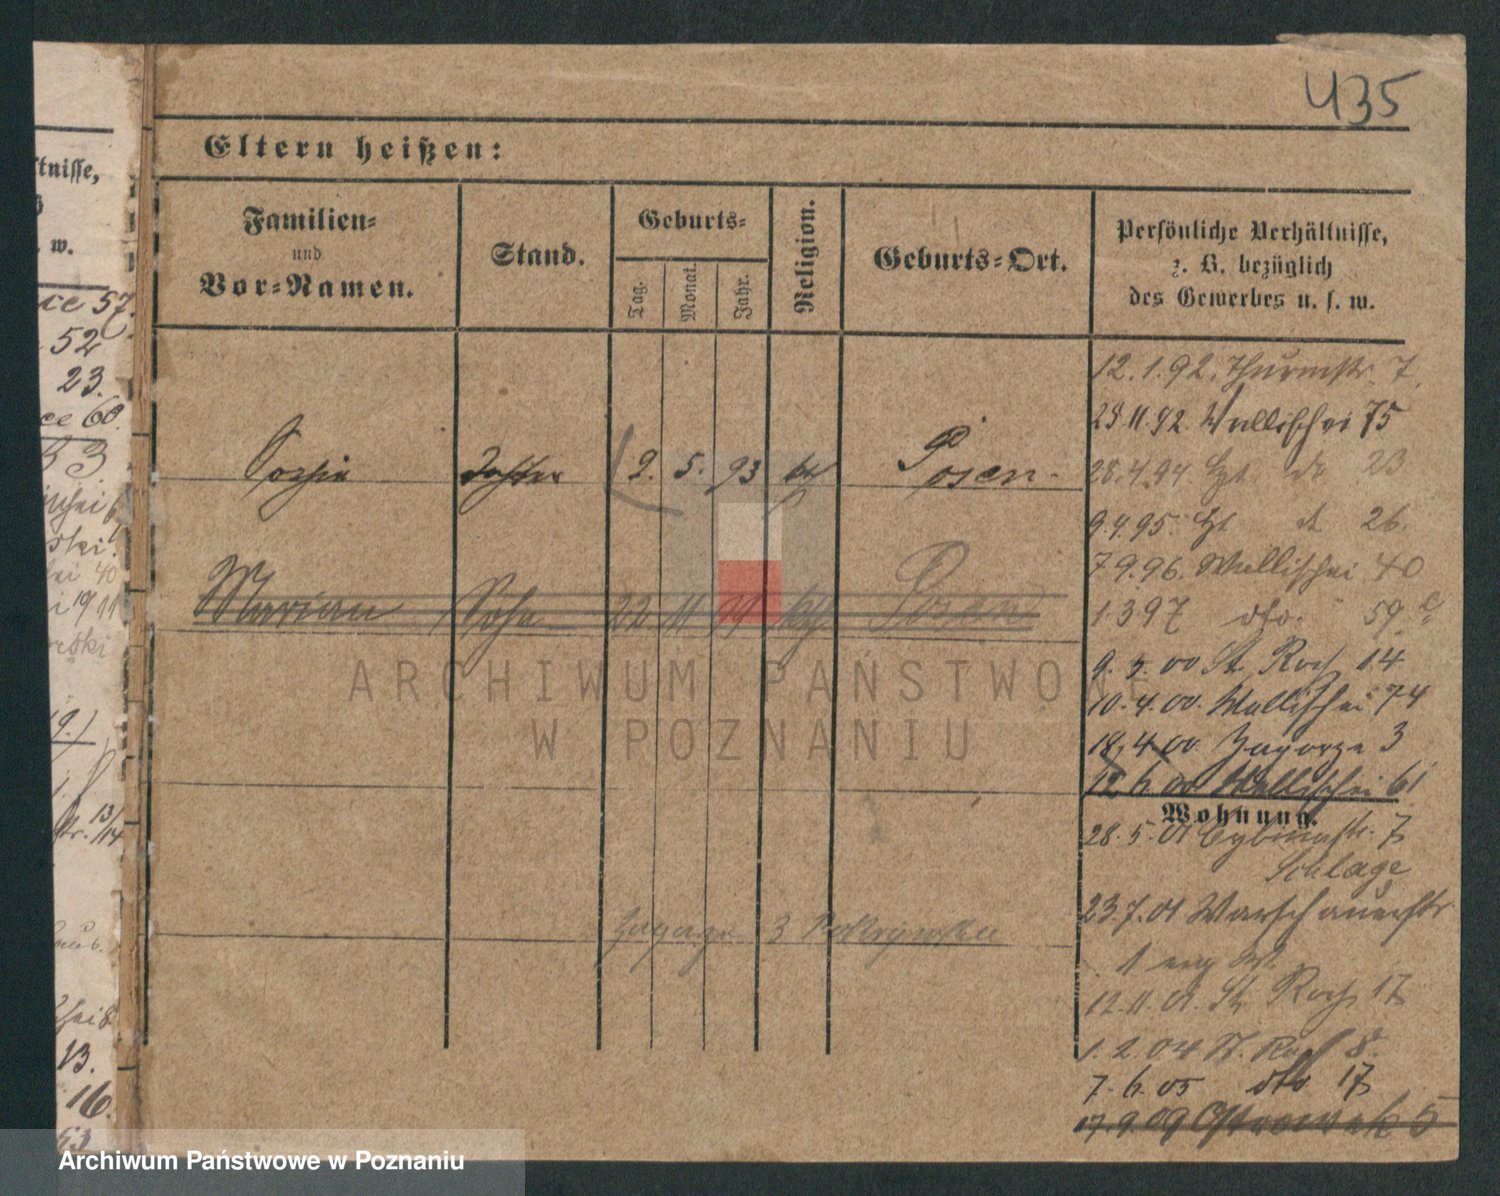 435
Eltern heißen:
Familien-
und
Vor-Namen.
Stand.
Geburts-
Tag.
Monat.
Jahr.
Religion.
Geburts-Ort.
Persönliche Verhältnisse,
z. B. bezüglich
des Gewerbes u. s. w.
Sophie Tochter 2. 5. 93 Posen
Marian Sohn 22 11 Posen
3
12. 1. 92. Thurmstr. 7
28. 11. 92. Wallischei 75
28. 4. 94 do 23
9. 4. 95 26.
7. 9. 96. Wallischei 40
1. 3 97 dto. 59
9. 3. 00 St. Roch 14
10. 4. 00. Wallischei 74
18. 4 00 Zagorze 3
12 6. 00 Wallischei 61
Wohnung.
28. 5. 01 Cybinastr. 7
Schlage
23. 7. 01 Warschauerstr.
1
12. 11. 01. St. Roch 17
1. 2. 04 St. Roch 8.
7. 6. 05 dto 17
17. 9. 09 Ostrowek 5
tnisse,
w.
57.
52
23.
60.
53
40
13/14
13.
16.
53
ARCHIWUM PAŃSTWOWE
W POZNANIU
Archiwum Państwowe w Poznaniu